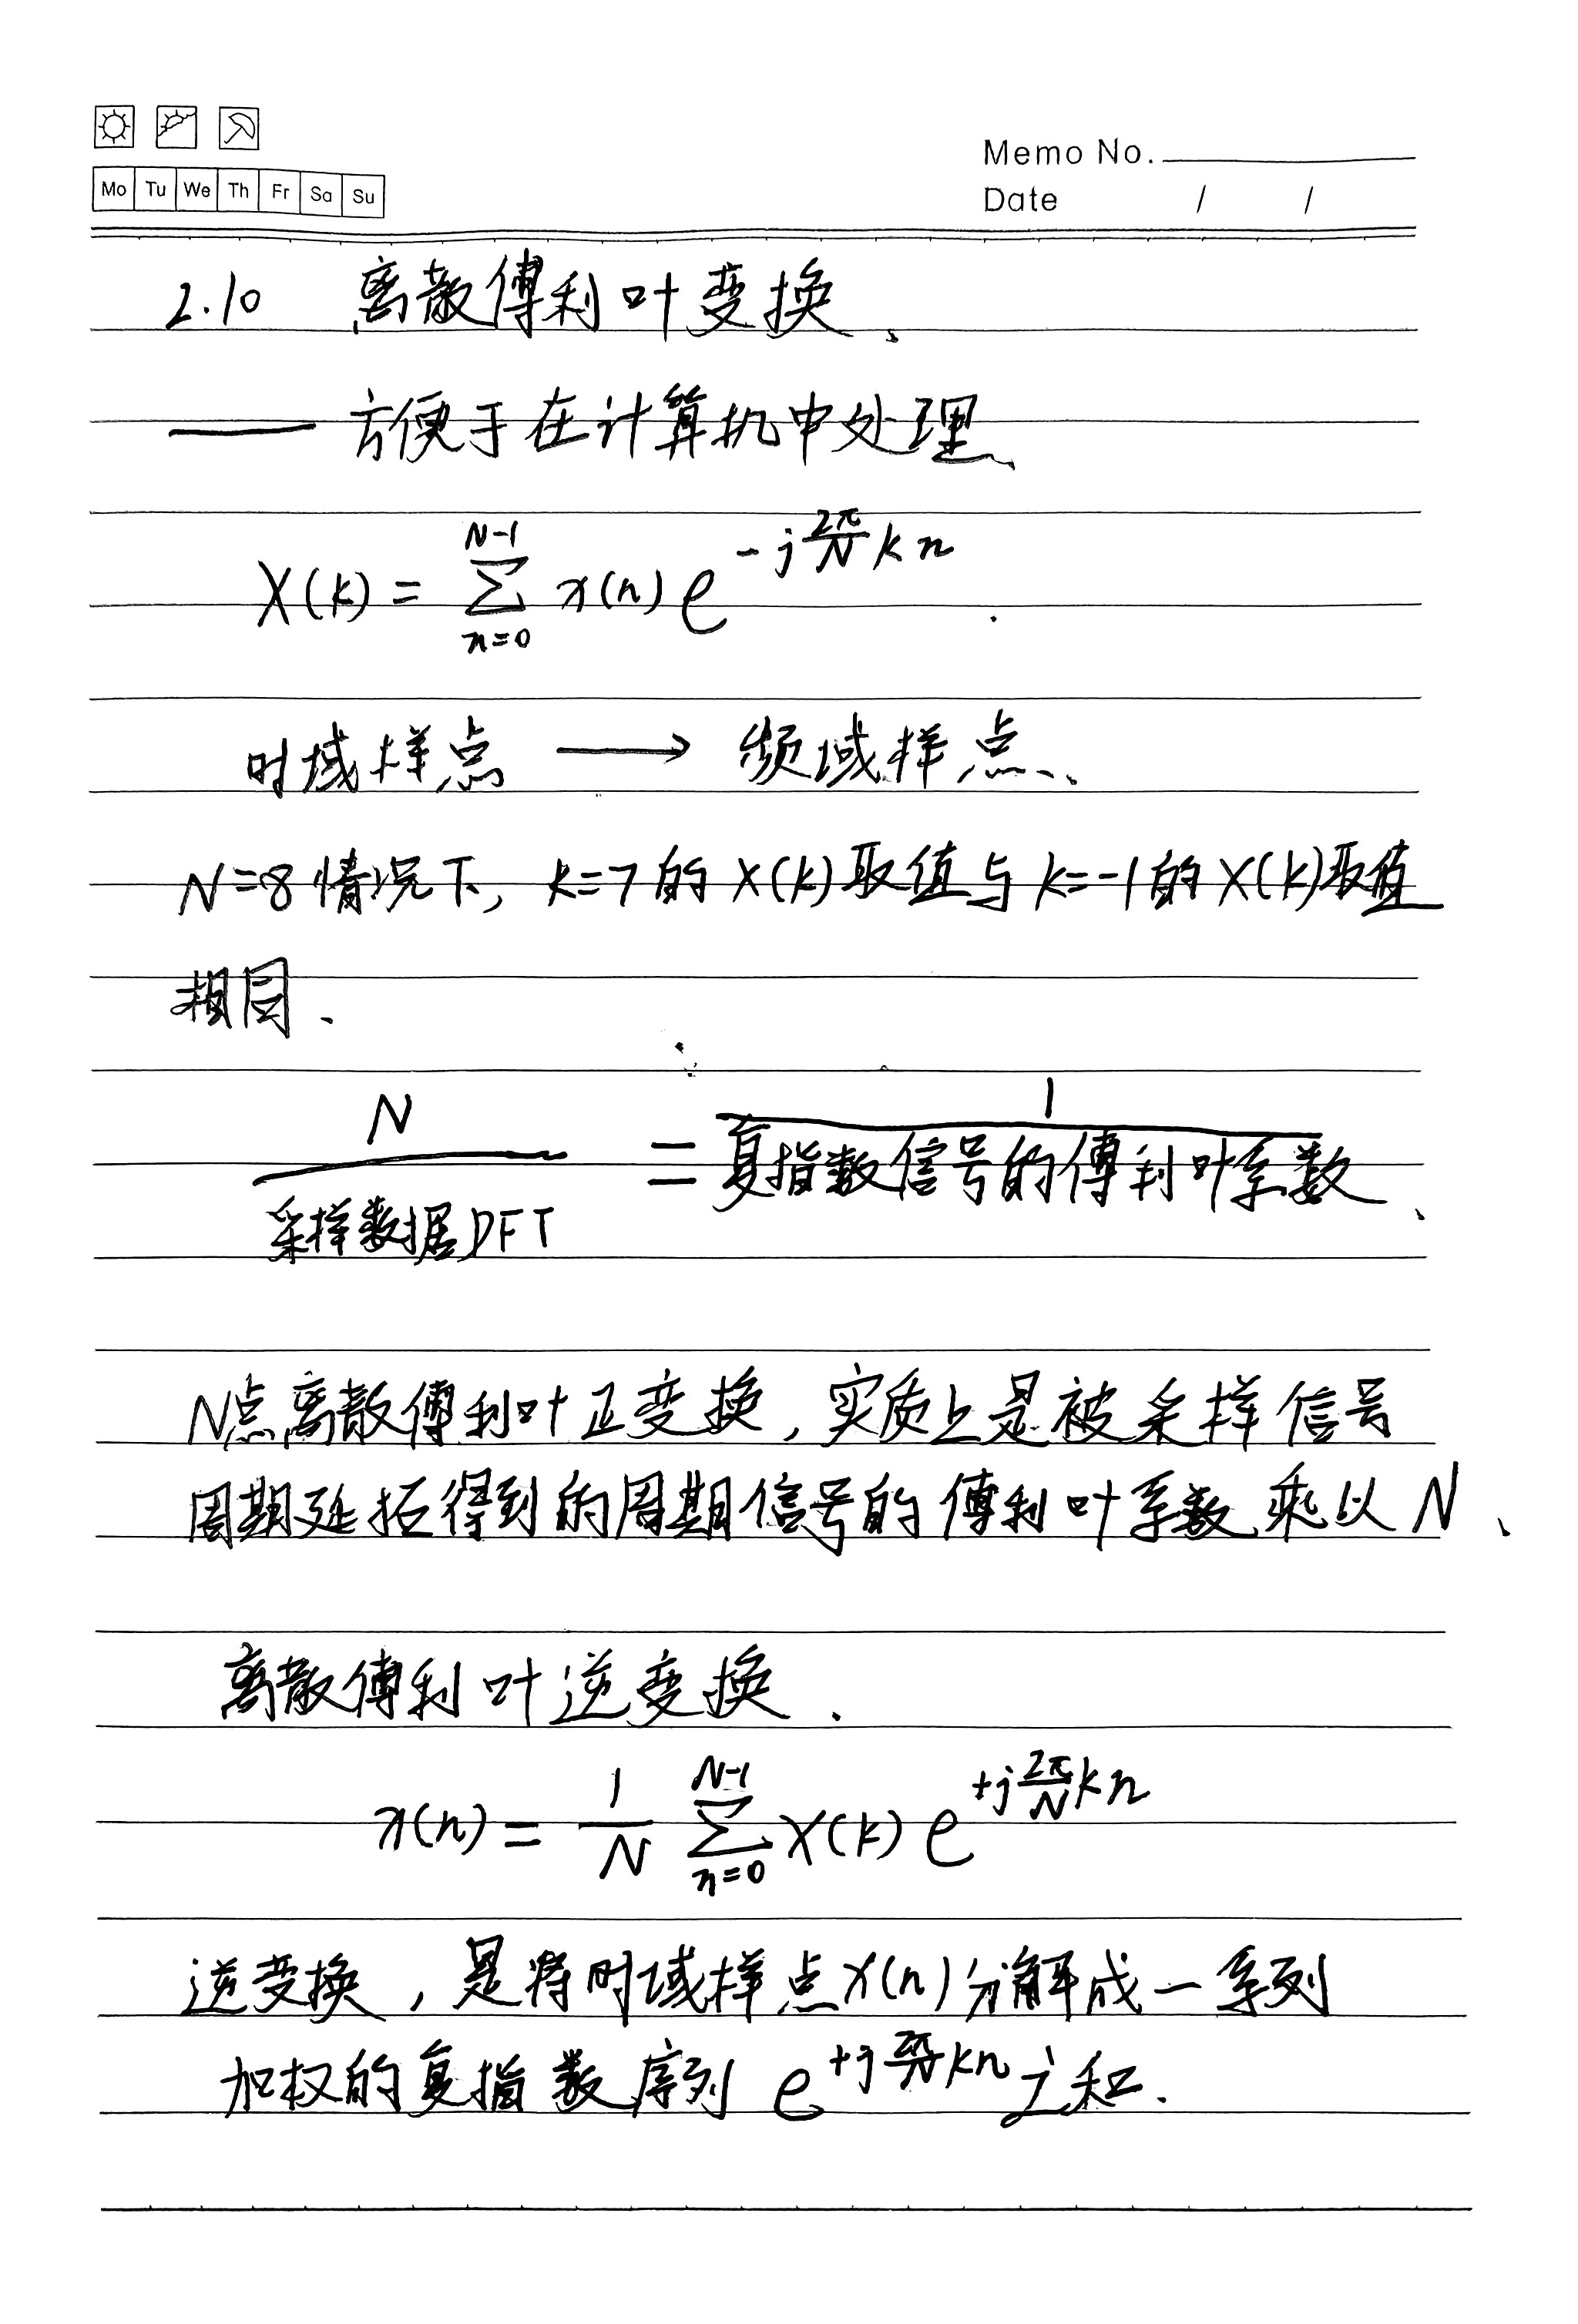 Mo Tu We Th Fr Sa Su
Memo No.
Date / /
2.10 离散傅利叶变换、
—— 方便于在计算机中处理、
X(k) = \sum_{n=0}^{N-1} x(n) e^{-j\frac{2π}{N}kn}.
时域样点 ⟶ 频域样点、
N=8情况下, k=7的X(k)取值与k=-1的X(k)取值
相同、
\frac{N}{采样数据DFT} = \frac{1}{复指数信号的傅利叶系数}、
N点离散傅利叶正变换,实质上是被采样信号
周期延拓得到的周期信号的傅利叶系数乘以N、
离散傅利叶逆变换.
x(n) = \frac{1}{N} \sum_{n=0}^{N-1} X(k) e^{+j\frac{2π}{N}kn}
逆变换,是将时域样点x(n)分解成一系列
加权的复指数序列 e^{+j\frac{2π}{N}kn}之和.